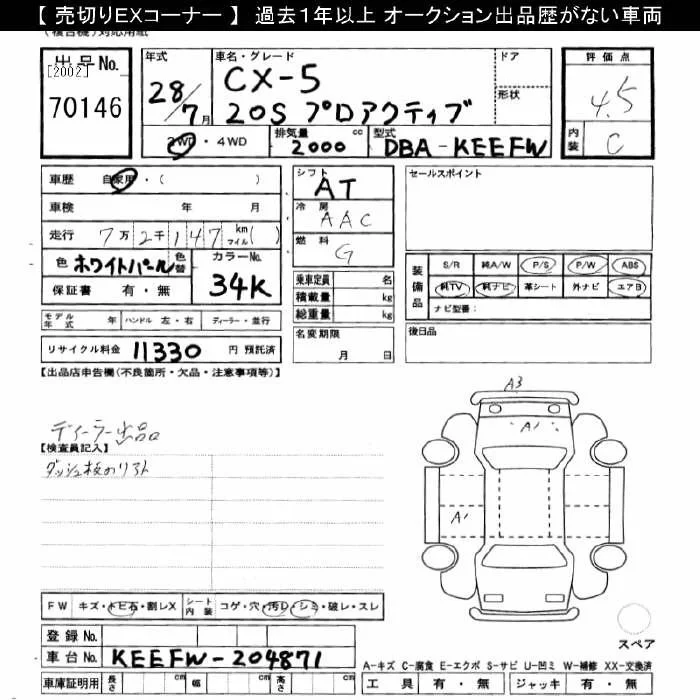 【 売切りEXコーナー 】 過去1年以上 オークション出品歴がない車両
出品No.
[2002]
70146
年式
28/7月
車名・グレード
CX-5
20S プロアクティブ
ドア
形状
評価点
4.5
内装
C
2WD・4WD
排気量 cc
2000
型式
DBA-KEEFW
車歴 自家用・( )
車検 年 月
走行 7万2千147 km マイル( )
色 ホワイトパール 色替
カラーNo.
34K
保証書 有・無
モデル年式 年 ハンドル 左・右 ディーラー・並行
リサイクル料金 11330 円 預託済
シフト
AT
冷房
AAC
燃料
G
乗車定員 名
積載量 kg
総重量 kg
名変期限
月 日
セールスポイント
装備品
S/R 純A/W P/S P/W ABS
純TV 純ナビ 革シート 外ナビ エアB
ナビ型番:
後日品
【出品店申告欄(不良箇所・欠品・注意事項等)】
ディーラー出品
【検査員記入】
A3
A1
A1
FW キズ・トビ石・割レX
シート内装 コゲ・穴・汚レ・シミ・破レ・スレ
登録No.
車台No. KEEFW-204871
車庫証明用 長さ cm 幅 cm 高さ cm
スペア
A-キズ C-腐食 E-エクボ S-サビ U-凹ミ W-補修 XX-交換済
工具 有・無 ジャッキ 有・無